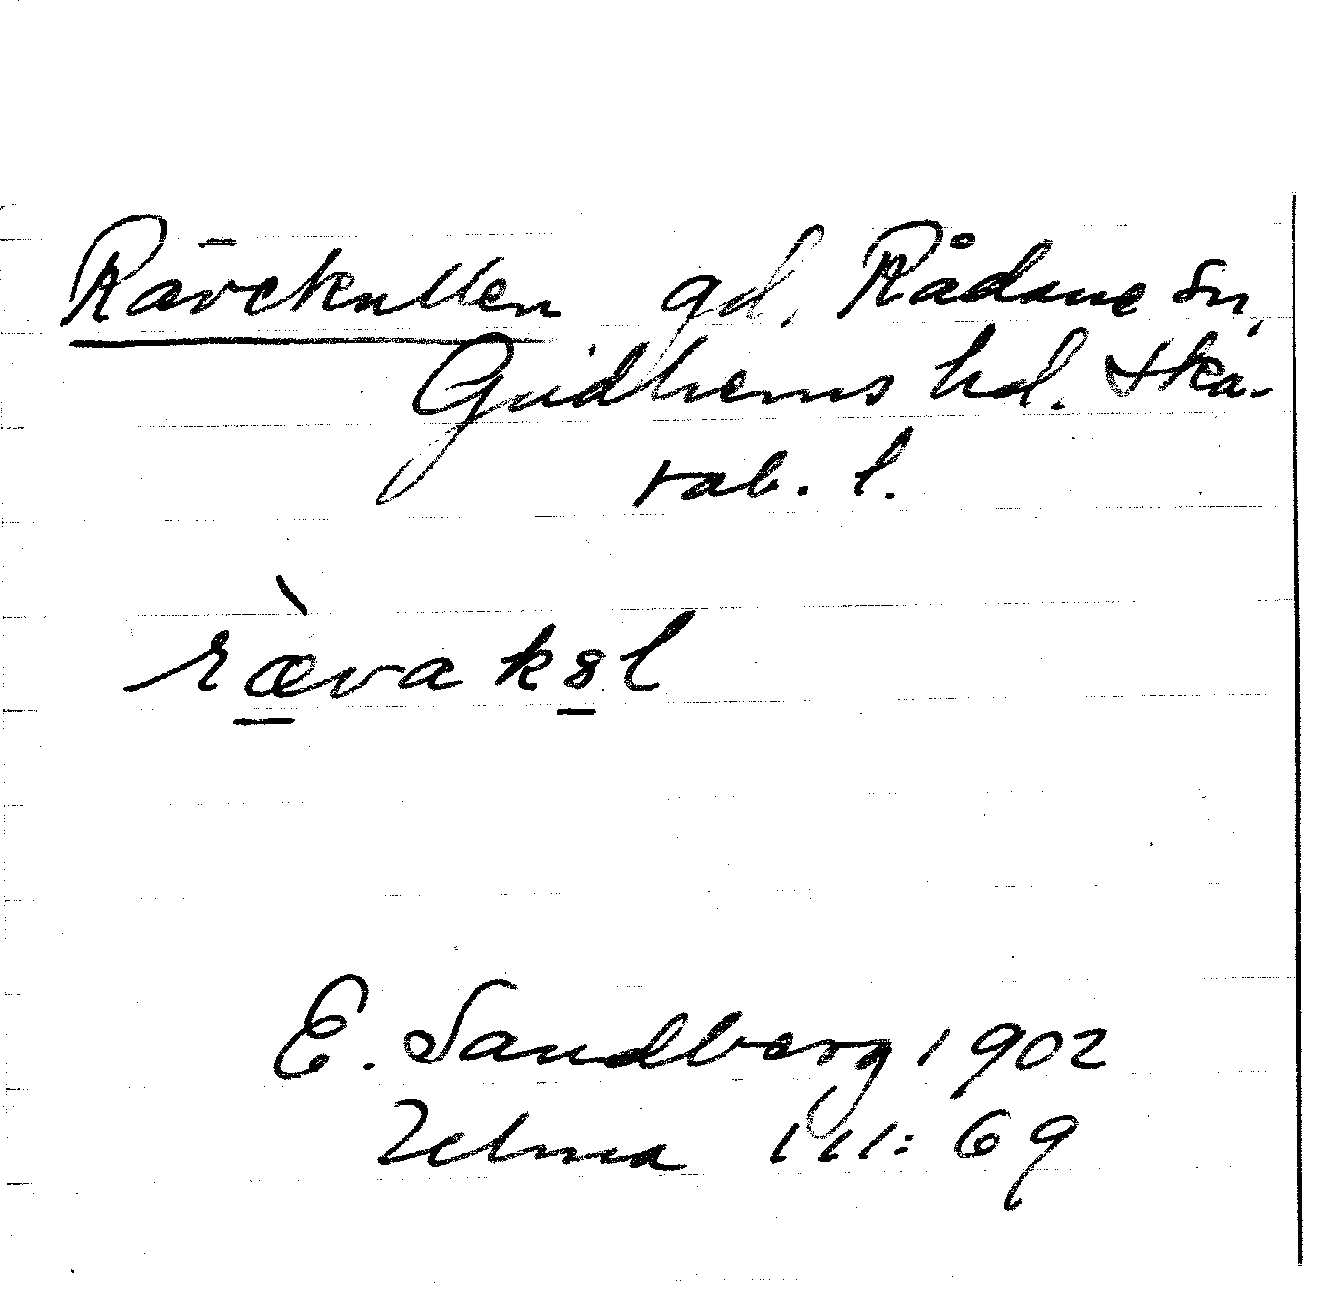 Rävekullen gd. Rådene sn,
Gudhems hd. Ska-
rab. l.
rævakɞl
E. Sandberg 1902
Zelma III: 69